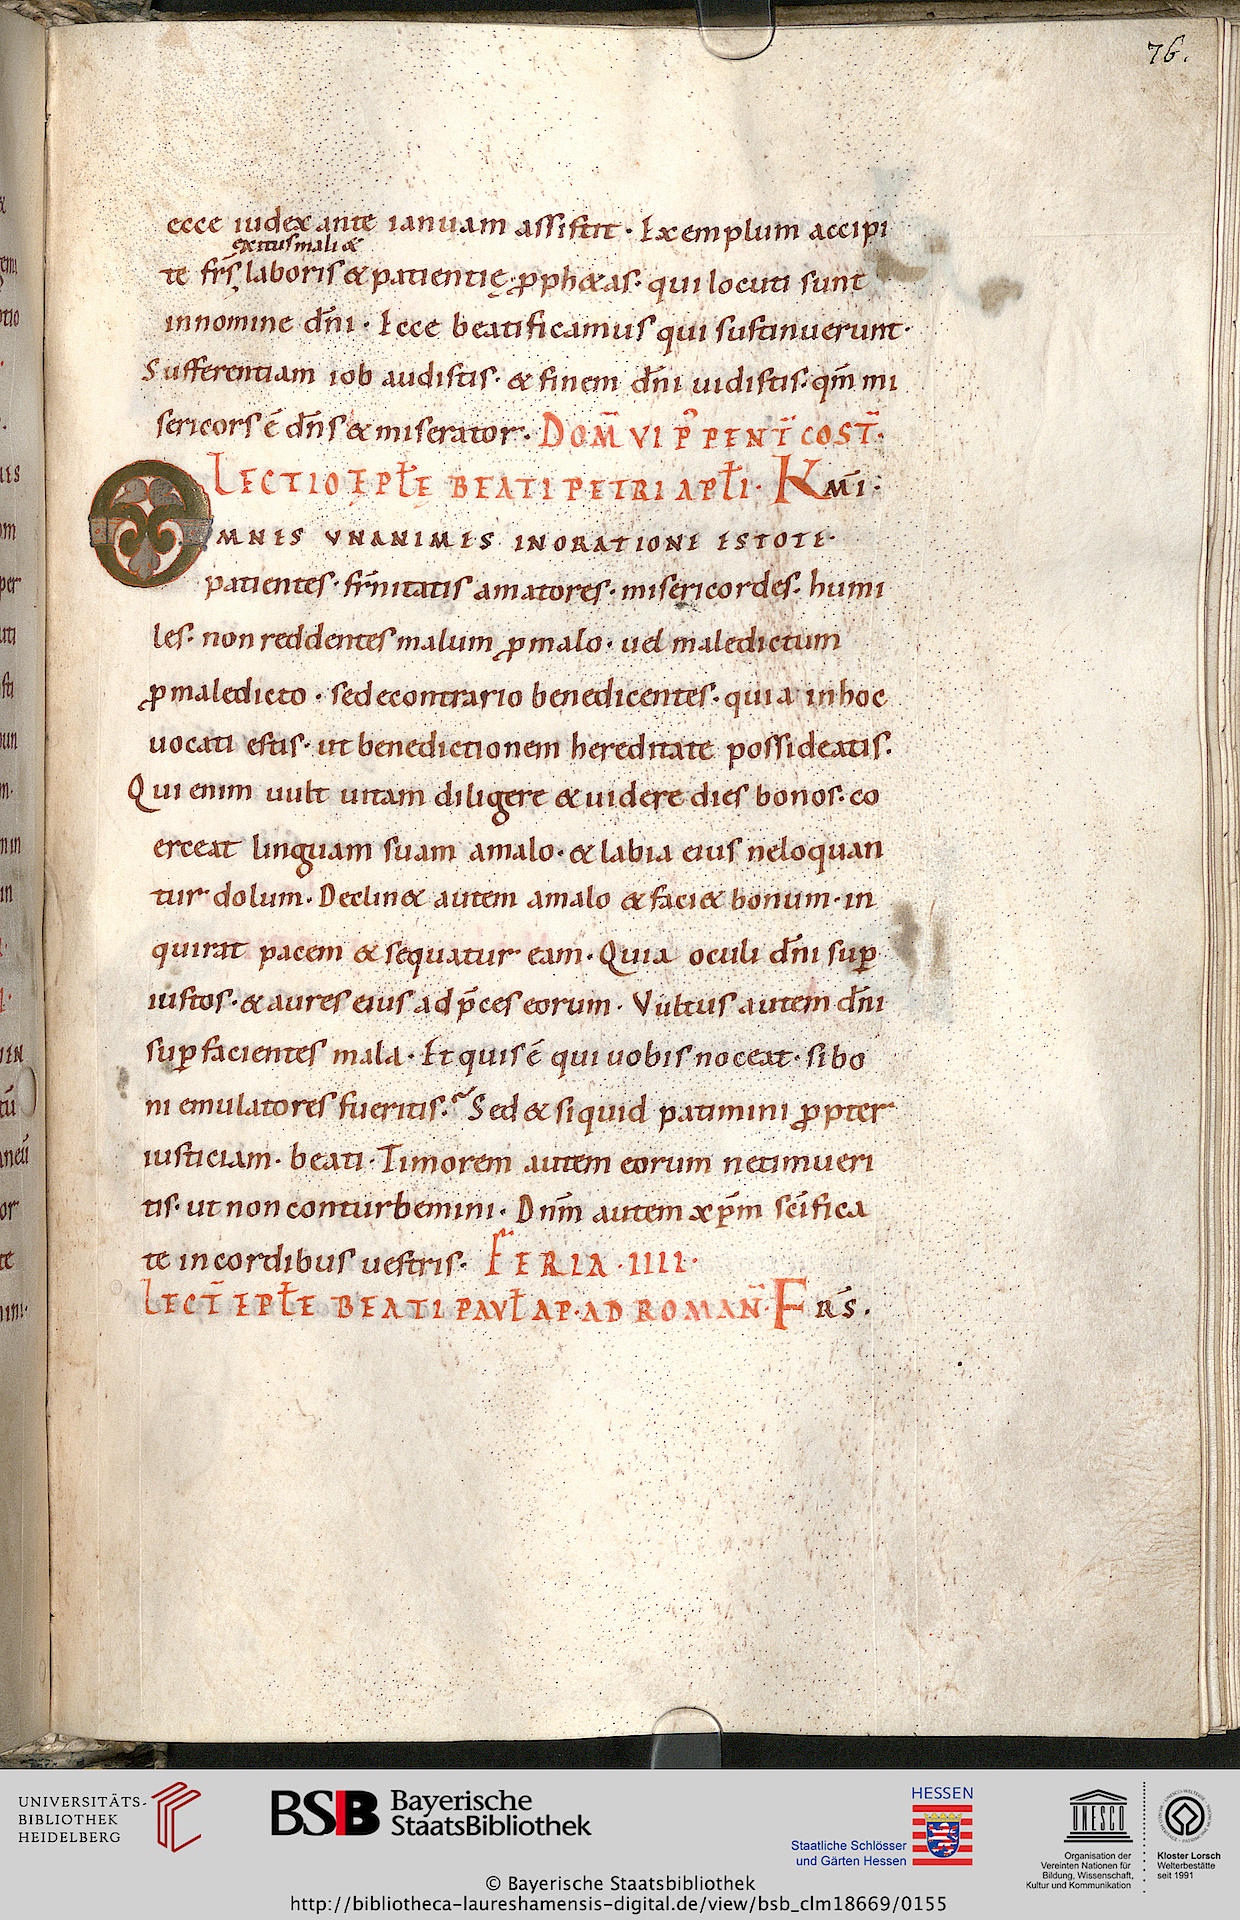 76.
ecce iudex ante ianuam assistit · Exemplum accipi
exitus mali &
te frs̄ laboris & patientię · ꝓph&as · qui locuti sunt
innomine dn̄i · Ecce beatificamus qui sustinuerunt ·
Sufferentiam iob audistis · & finem dn̄i uidistis · qm̄ mi
sericors ē dn̄s & miserator · DOM̄ VI P̄ PENT̄ COST̄ ·
LECTIO EPŁE BEATI PETRI APŁI · Kmī ·
OMNES VNANIMES INORATIONE ESTOTE ·
patientes · frn̄itatis amatores · misericordes · humi
les · non reddentes malum ꝓmalo · uel maledictum
ꝓmaledicto · sedecontrario benedicentes · quia inhoc
uocati estis · ut benedictionem hereditate possideatis ·
Qui enim uult uitam diligere & uidere dies bonos · co
erceat linguam suam amalo · & labia eius neloquan
tur dolum · Declin& autem amalo & faci& bonum · in
quirat pacem & sequatur eam · Quia oculi dn̄i suꝑ
iustos · & aures eius ad p̄ces eorum · Vultus autem dn̄i
suꝑ facientes mala · Et quis ē qui uobis noceat · si bo
ni emulatores fueritis · Sed & siquid patimini ꝓpter
iusticiam · beati · Timorem autem eorum netimueri
tis · ut non conturbemini · Dnm̄ autem xp̄m scīfica
te incordibus uestris · FERIA · IIII ·
LECT̄ EPŁE BEATI PAVŁ AP · AD ROMAN̄ · FRS̄ ·
UNIVERSITÄTS-
BIBLIOTHEK
HEIDELBERG
BSB Bayerische
StaatsBibliothek
HESSEN
Staatliche Schlösser
und Gärten Hessen
UNESCO
Organisation der
Vereinten Nationen für
Bildung, Wissenschaft,
Kultur und Kommunikation
Kloster Lorsch
Welterbestätte
seit 1991
© Bayerische StaatsBibliothek
http://bibliotheca-laureshamensis-digital.de/view/bsb_clm18669/0155